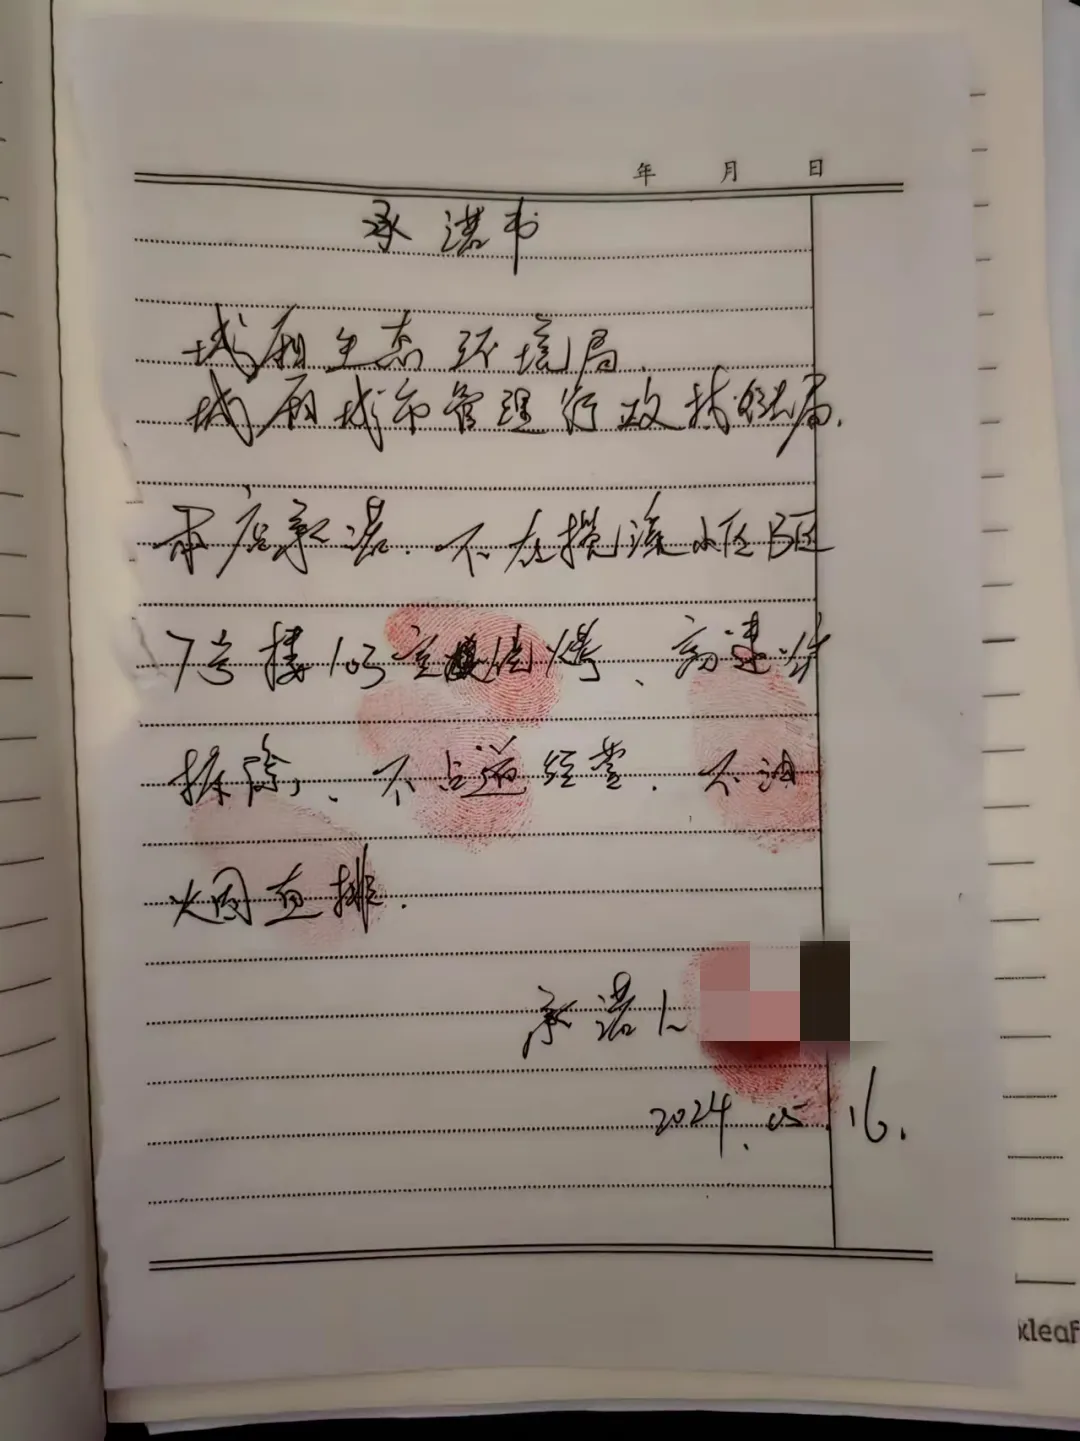 年 月 日
承诺书
城厢生态环境局.
城厢城市管理行政执法局.
本店承诺.不在揽溪小区B区
7号楼103室烧烤、高速炉
拆除、不占道经营.不油
烟直排.
承诺人
2024.05.16.
xleaf